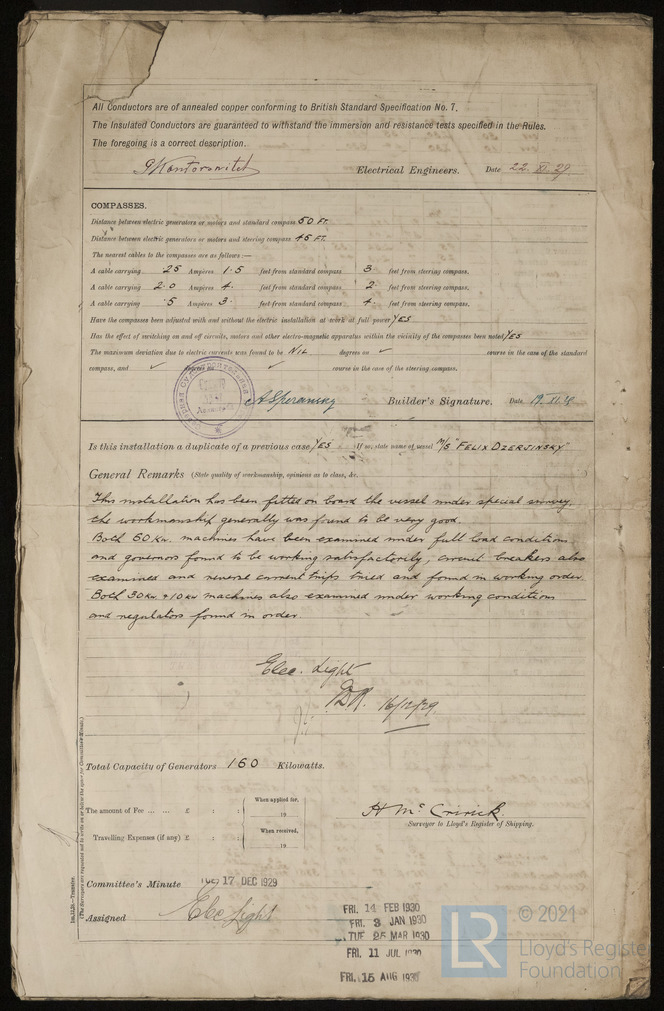 All Conductors are of annealed copper conforming to British Standard Specification No. 7.
The Insulated Conductors are guaranteed to withstand the immersion and resistance tests specified in the Rules.
The foregoing is a correct description.
Electrical Engineers. Date 22. XI. 29
COMPASSES.
Distance between electric generators or motors and standard compass 50 FT.
Distance between electric generators or motors and steering compass 45 FT.
The nearest cables to the compasses are as follows:—
A cable carrying 25 Ampères 1.5 feet from standard compass 3. feet from steering compass.
A cable carrying 2.0 Ampères 4. feet from standard compass 2. feet from steering compass.
A cable carrying .5 Ampères 3. feet from standard compass 4. feet from steering compass.
Have the compasses been adjusted with and without the electric installation at work at full power YES
Has the effect of switching on and off circuits, motors and other electro-magnetic apparatus within the vicinity of the compasses been noted YES
The maximum deviation due to electric currents was found to be NIL degrees on ✓ course in the case of the standard
compass, and ✓ degrees on ✓ course in the case of the steering compass.
A Speransky Builder's Signature. Date
Is this installation a duplicate of a previous case YES If so, state name of vessel M/S "FELIX DZERJINSKY"
General Remarks (State quality of workmanship, opinions as to class, &c.
This installation has been fitted on board the vessel under special survey.
the workmanship generally was found to be very good.
Both 60 Kw. machines have been examined under full load conditions
and governors found to be working satisfactorily, circuit breakers also
examined and reverse current trips tried and found in working order.
Both 30 Kw. & 10 Kw machines also examined under working conditions
and regulators found in order.
Elec. Light
16/12/29
Total Capacity of Generators 160 Kilowatts.
The amount of Fee ... ... £ : : When applied for, 19
Travelling Expenses (if any) £ : : When received, 19
H Mc Cririck
Surveyor to Lloyd's Register of Shipping.
Committee's Minute TUE 17 DEC 1929
Assigned Elec Light
FRI. 14 FEB 1930
FRI. 3 JAN 1930
TUE 25 MAR 1930
FRI. 11 JUL 1930
FRI. 15 AUG 1930
(The Surveyors are requested not to write on or below the space for Committee's Minute.)
LR
© 2021
Lloyd's Register
Foundation